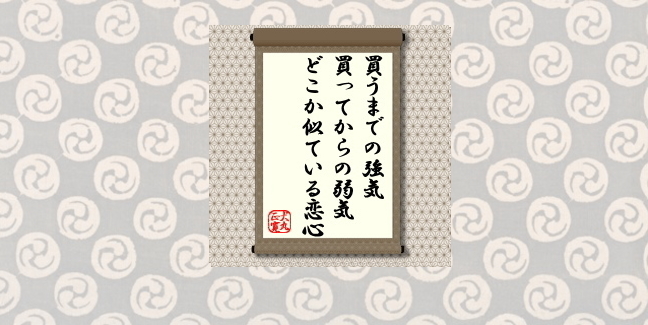 買うまでの強気
買ってからの弱気
どこか似ている恋心